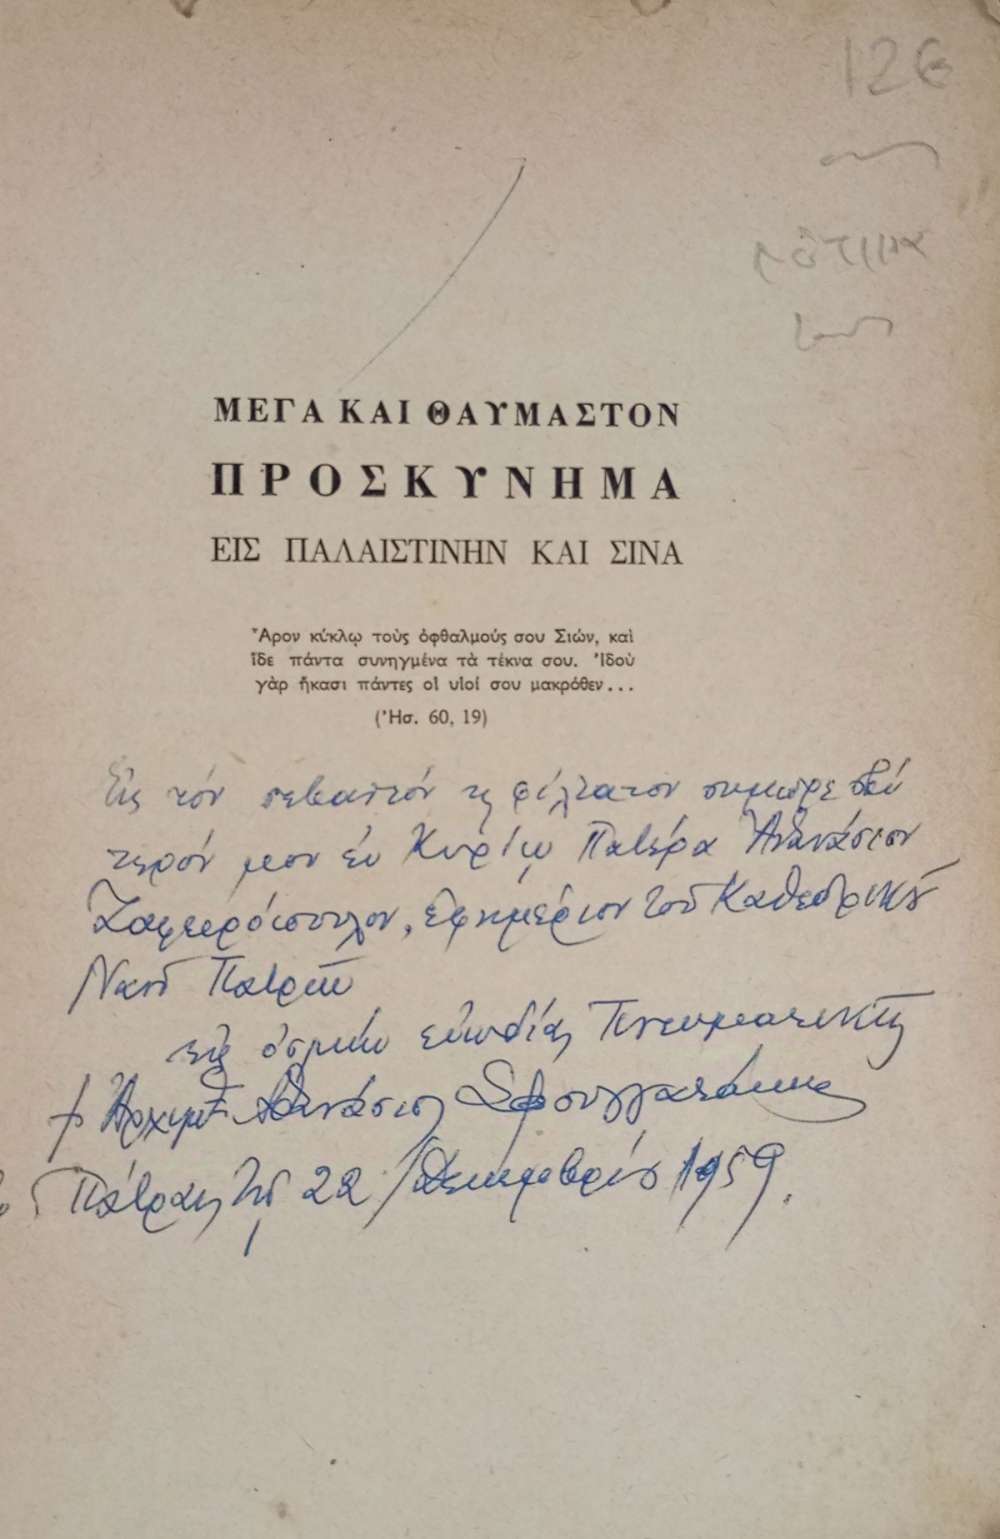 126
ΜΕΓΑ ΚΑΙ ΘΑΥΜΑΣΤΟΝ
ΠΡΟΣΚΥΝΗΜΑ
ΕΙΣ ΠΑΛΑΙΣΤΙΝΗΝ ΚΑΙ ΣΙΝΑ
Ἆρον κύκλῳ τοὺς ὀφθαλμούς σου Σιών, καὶ
ἴδε πάντα συνηγμένα τὰ τέκνα σου. Ἰδοὺ
γὰρ ἥκασι πάντες οἱ υἱοί σου μακρόθεν...
(Ἠσ. 60, 19)
Εἰς τόν σεβαστόν ϗ φίλτατον συμπρεσβύ
τερόν μου ἐν Κυρίῳ Πατέρα Ἀθανάσιον
Ζαφειρόπουλον, ἐφημέριον τοῦ Καθεδρικοῦ
Ναοῦ Πατρῶν
εἰς ὀσμήν εὐωδίας Πνευματικῆς
Ἀρχιμ. Ἀθανάσιος
Πάτραι τῇ 22 Δεκεμβρίου 1959.